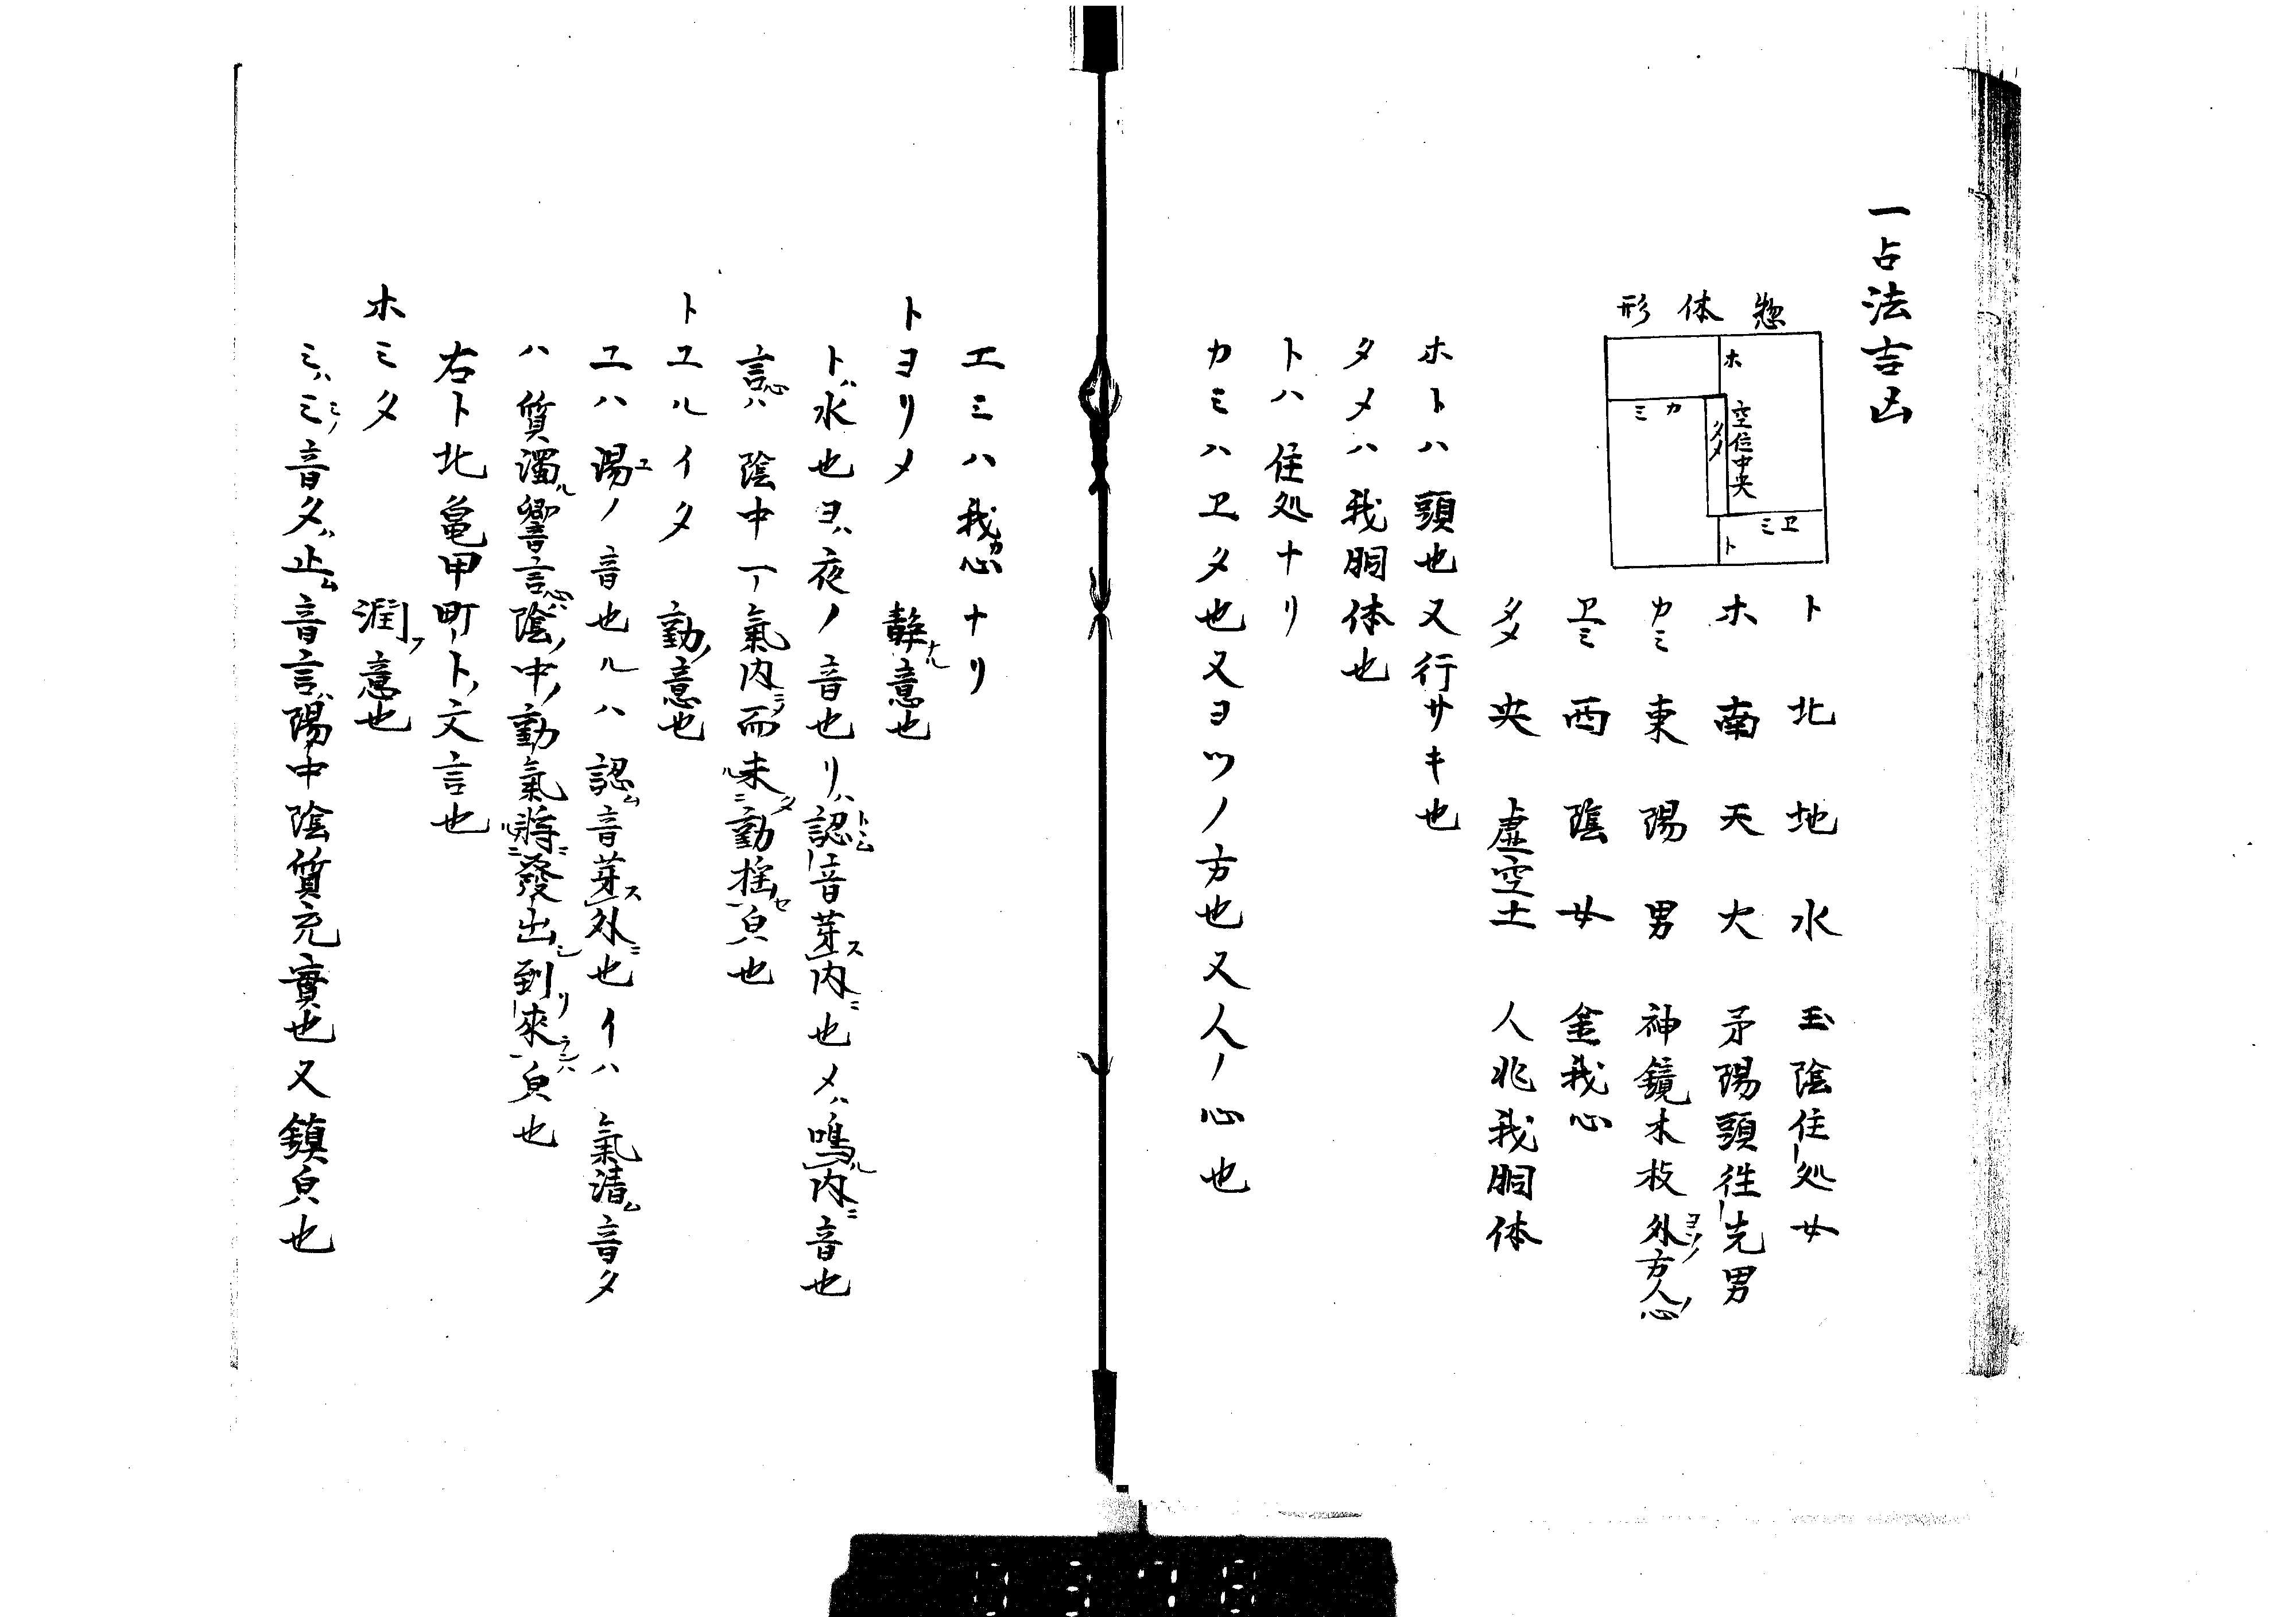 一占法吉凶
惣体形
ホ
空位中央
タメ
カミ
ヱミ
ト
ト 北 地 水 玉 陰 住処 女
ホ 南 天 火 矛 陽 頭 往先 男
カミ 東 陽 男 神 鏡 木 枝 外方人心
ヱミ 西 陰 女 金 我心
タメ 央 虚空土 人 兆 我胴体
ホトハ頭也又行サキ也
タメハ我胴体也
トハ住処ナリ
カミハヱタ也又ヨツノ方也又人ノ心也
エミハ我カ心ナリ
トヨリメ 静ナル意也
トハ水也ヨハ夜ノ音也リハ認トムル音芽ス内ニ也メハ鳴ル内ニ音也
言心ハ陰中一氣内ニシテ而未タ動揺セ皃也
トユルイタ 動ノ意也
ユハ湯ユノ音也ルハ認ム音芽ス外ニ也イハ氣清ム音タ
ハ質濁ル響言心ハ陰ノ中ノ動氣將ニ發出シ到リ來皃也
右ト北亀甲町トノ文言也
ホミタ 潤フ意也
ミハミノ音タハ止ム音言ハ陽中陰質充實也又鎮皃也